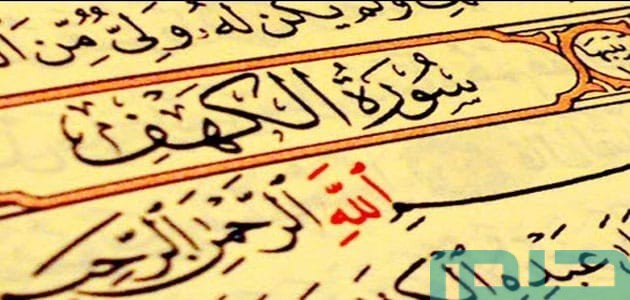 وَلَمْ يَكُن لَّهُ وَلِيٌّ مِّنَ
سُورَةُ الكَهْفِ
ٱللَّهِ ٱلرَّحْمَٰنِ ٱلرَّحِيمِ
عَبْدِهِ